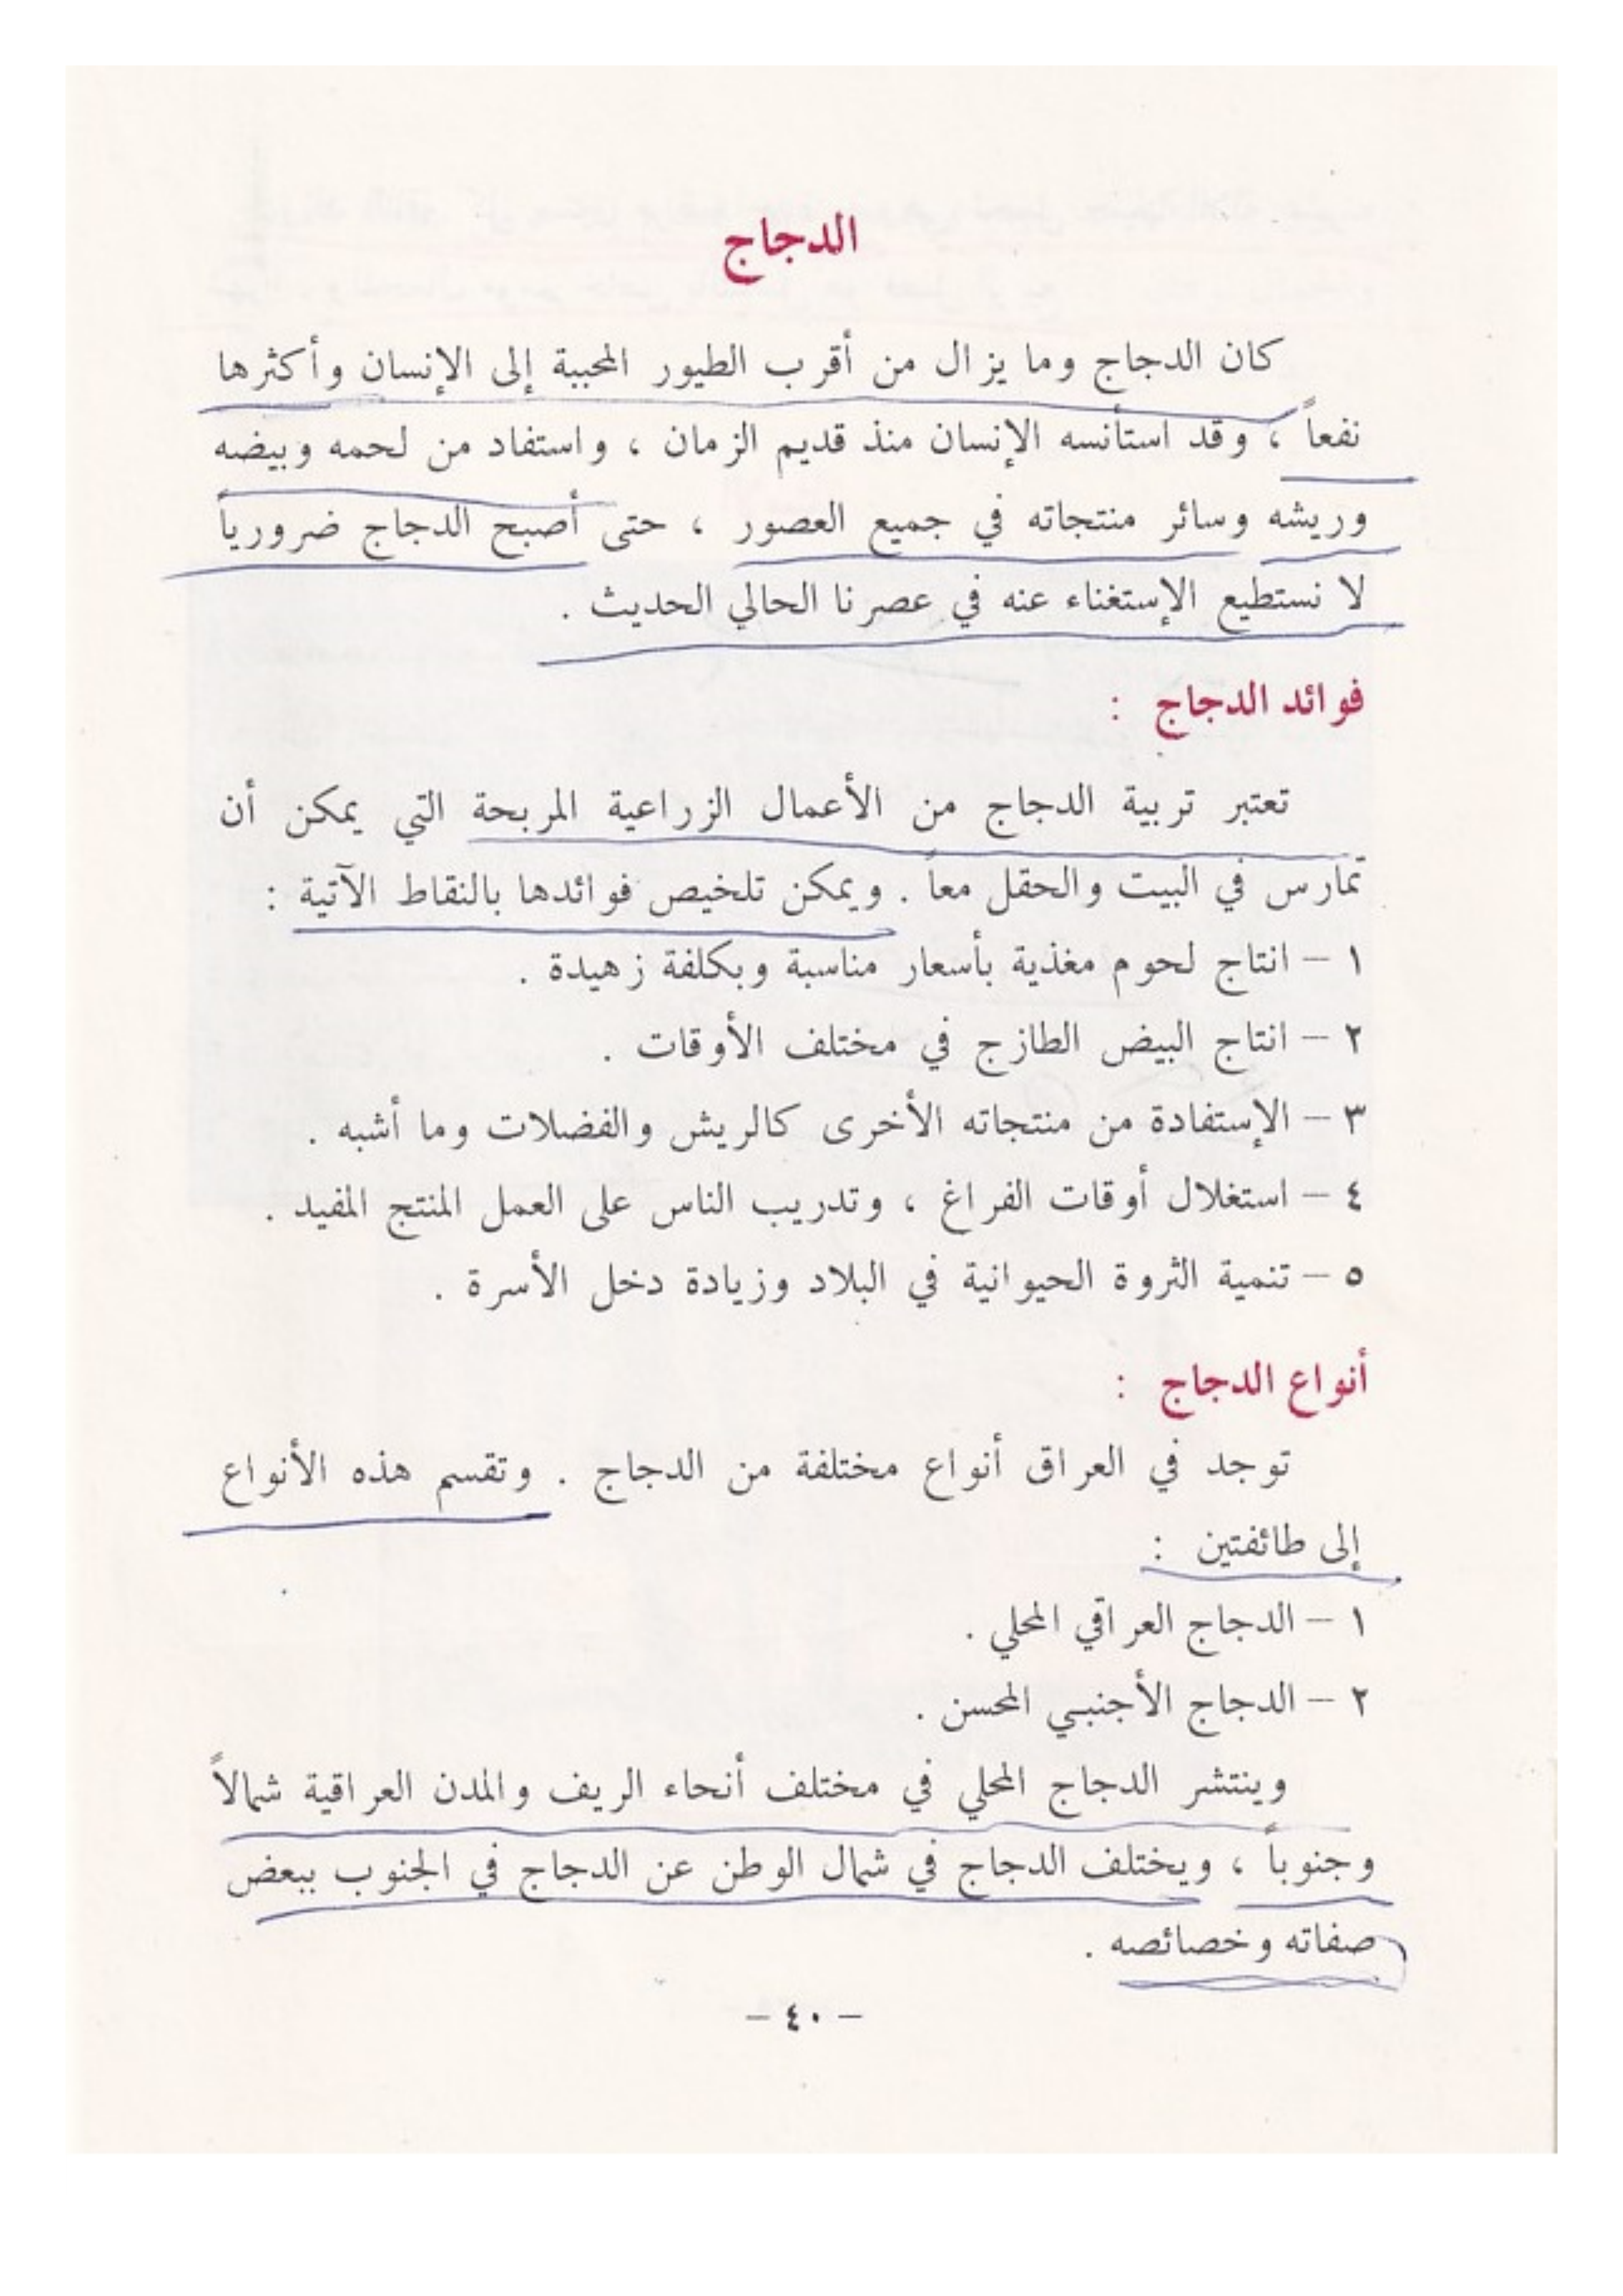 الدجاج
كان الدجاج وما يزال من أقرب الطيور المحببة إلى الإنسان وأكثرها
نفعاً ، وقد استأنسه الإنسان منذ قديم الزمان ، واستفاد من لحمه وبيضه
وريشه وسائر منتجاته في جميع العصور ، حتى أصبح الدجاج ضرورياً
لا نستطيع الإستغناء عنه في عصرنا الحالي الحديث .
فوائد الدجاج :
تعتبر تربية الدجاج من الأعمال الزراعية المربحة التي يمكن أن
تمارس في البيت والحقل معاً . ويمكن تلخيص فوائدها بالنقاط الآتية :
١ – انتاج لحوم مغذية بأسعار مناسبة وبكلفة زهيدة .
٢ – انتاج البيض الطازج في مختلف الأوقات .
٣ – الإستفادة من منتجاته الأخرى كالريش والفضلات وما أشبه .
٤ – استغلال أوقات الفراغ ، وتدريب الناس على العمل المنتج المفيد .
٥ – تنمية الثروة الحيوانية في البلاد وزيادة دخل الأسرة .
أنواع الدجاج :
توجد في العراق أنواع مختلفة من الدجاج . وتقسم هذه الأنواع
إلى طائفتين :
١ – الدجاج العراقي المحلي .
٢ – الدجاج الأجنبي المحسن .
وينتشر الدجاج المحلي في مختلف أنحاء الريف والمدن العراقية شمالاً
وجنوباً ، ويختلف الدجاج في شمال الوطن عن الدجاج في الجنوب ببعض
صفاته وخصائصه .
– ٤٠ –